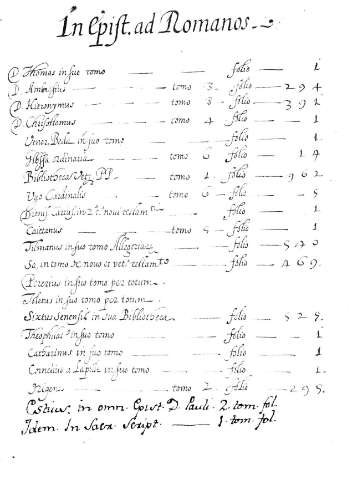 In Epist. ad Romanos.
D Thomas in suo tomo — folio — 1
D Ambrosius — tomo 3 — folio — 294
D Hieronymus — tomo 8 — folio — 391
D Chrisostomus — tomo 4 — folio — 1
Vener. Beda in suo tomo — folio — 1
Glossa ordinaria — tomo 6 — folio — 14
Bibliotheca Vet. PP — tomo 1 — folio — 962
Ugo Cardinalis — tomo 6 — folio — 5
in 2. novi testam — folio — 1
Caietanus — tomo 5 — folio — 1
Tilmanus in suo tomo Allegoriae — folio — 540
So, in tomo novo et vet. testamto — folio — 469.
Pererius in suo tomo per totum
Toletus in suo tomo per totum
Sixtus Senensis in sua Bibliotheca — folio — 525
Theophilac in suo tomo — folio — 1
Catharinus in suo tomo — folio — 1
Cornelius a Lapide in suo tomo — folio — 1
Origenes — tomo 2 — folio — 295.
Estius in omn. Epist. D. Pauli. 2. tom. fol.
Idem. In Sacr. Script. — 1. tom. fol.